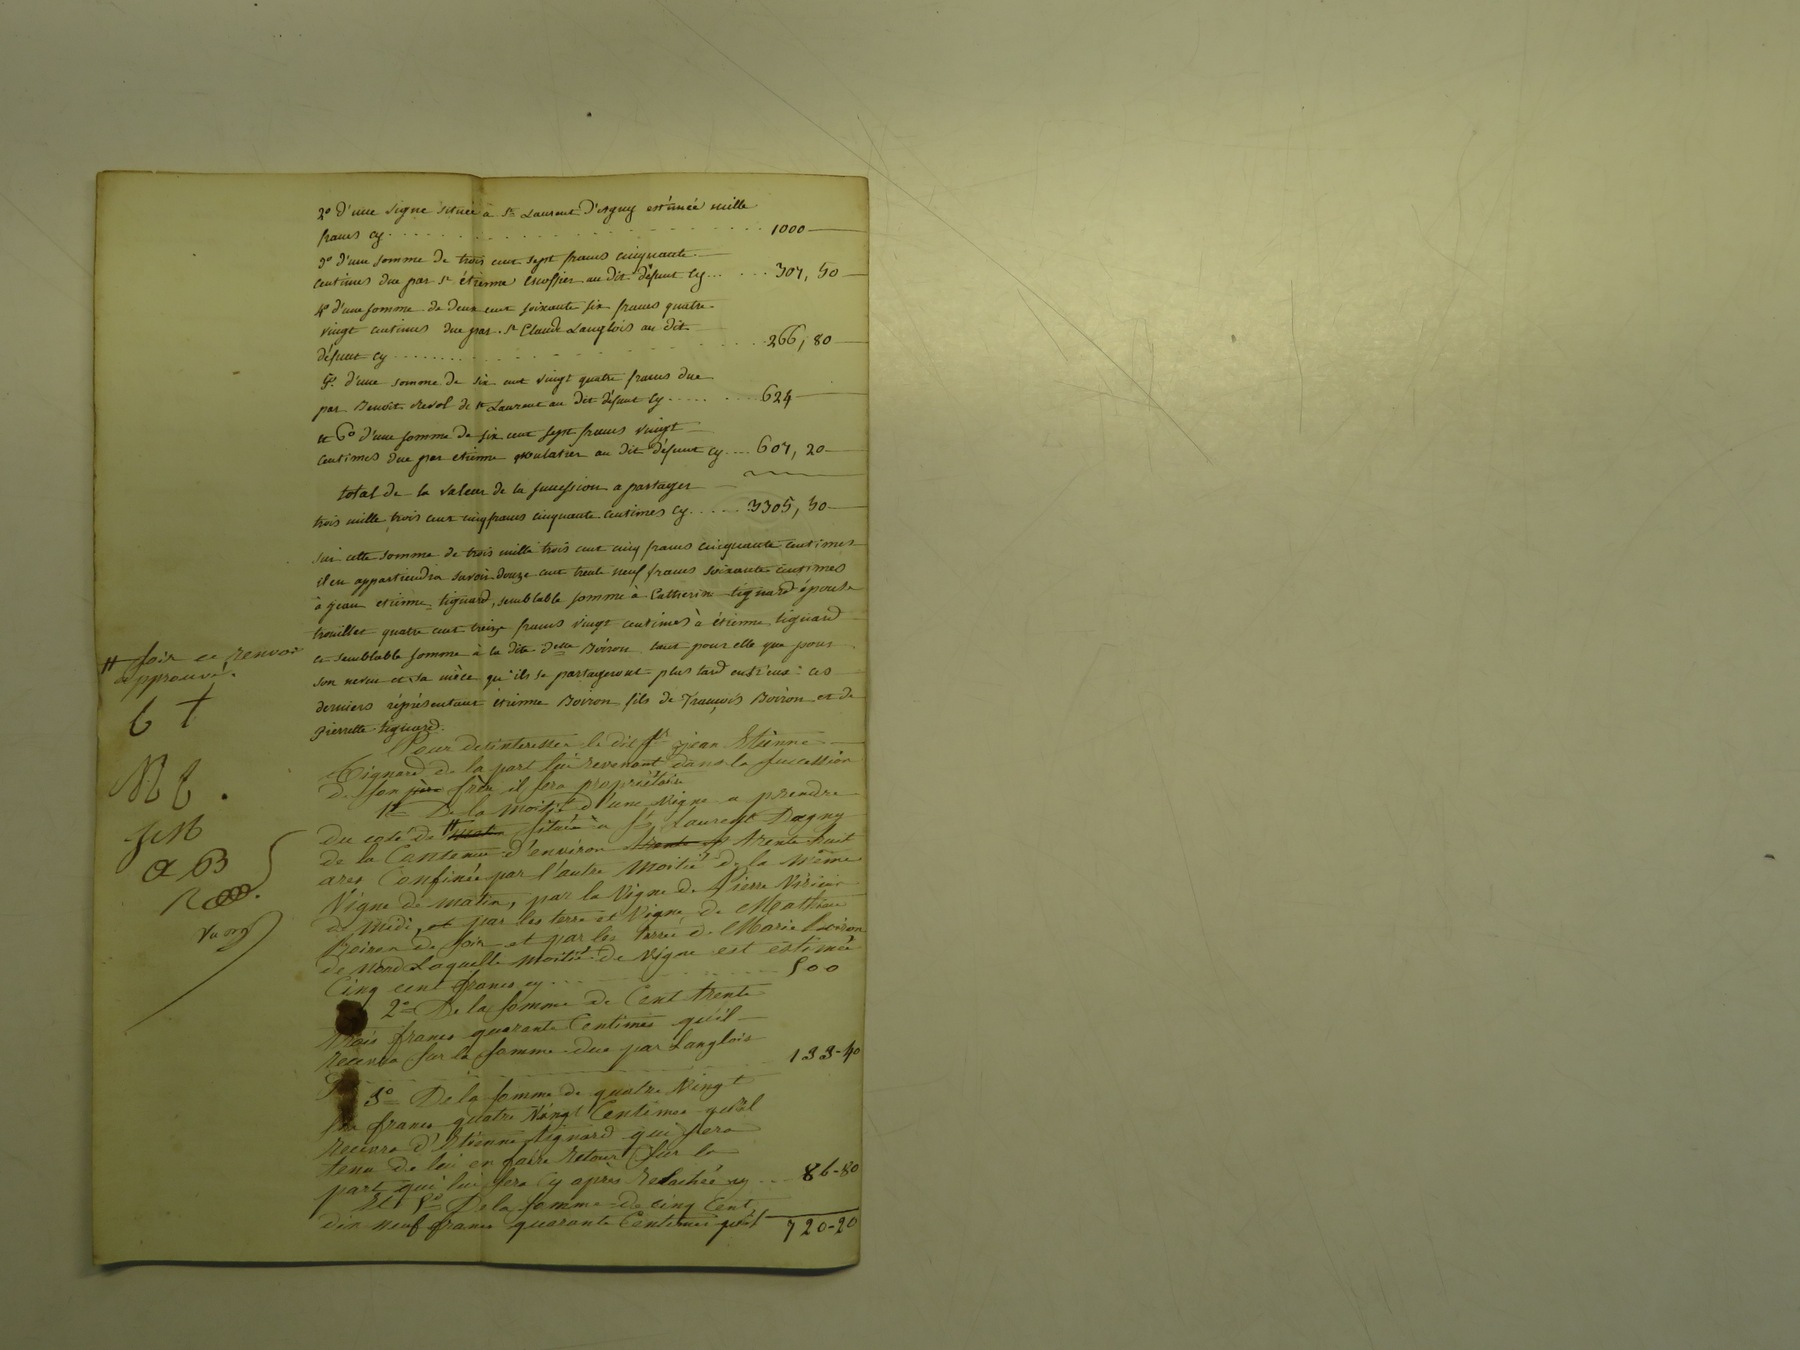 2º d'une vigne située à St Laurent D'agny estimée mille
francs cy . . . . . . . . . . 1000
3º d'une somme de trois cent sept francs cinquante
centimes due par Sr étienne au dit défunt cy . . . . . . 307, 50
4º d'une somme de deux cent soixante six francs quatre
vingt centimes due par Sr Claude Langlois au dit
défunt cy . . . . . . . . . . 266, 80
5º d'une somme de six cent vingt quatre francs due
par Benoit Revol de St Laurent au dit défunt cy . . . . . . . 624
et 6º d'une somme de six cent sept francs vingt
centimes due par etienne au dit défunt cy . . . . 607, 20
total de la valeur de la succession a partager
trois mille trois cent cinq francs cinquante centimes cy . . . . . 3305, 50
sur cette somme de trois mille trois cent cinq francs cinquante centimes
il en appartiendra savoir douze cent trente neuf francs soixante centimes
à jean etienne tignard, semblable somme à Catherine tignard épouse
trouillet quatre cent treize francs vingt centimes à étienne tignard
et semblable somme à la dite delle Boiron tant pour elle que pour
son neveu et sa nièce qu'ils se partageront plus tard entr'eux : ces
derniers réprésentant étienne Boiron fils de françois Boiron et de
pierrette tignard.
Pour desinteresser le dit Sr jean Etienne
Tignard de la part lui revenant dans la succession
de son père frère il sera propriétaire
1º De la moitié d'une vigne a prendre
du coté de # située a St Laurent Dagny
de la Contenue d'environ trente Trente huit
ares Confinée par l'autre moitié de la même
Vigne de matin, par la Vigne de Pierre
de midi, et par les terre et Vigne de Mathieu
Boiron de soir et par les terres de Marie boiron
de nord Laquelle moitié de Vigne est estimée
Cinq cent francs cy . . . . . . . . 500
2º De la somme de Cent trente
trois francs quarante Centimes qu'il
recevra sur la somme due par Langlois
133-40
3º De la somme de quatre Vingt
six francs quatre Vingt Centimes qu'il
recevra d'Etienne tignard qui sera
tenu de lui en faire retour sur la
part qui lui sera cy après relachée cy . . . 86-80
Et 4º De la somme de cinq Cent
dix neuf francs quarante Centimes qu'il 720-20
# soir ce renvoi
approuvé.
C T
J M
a B